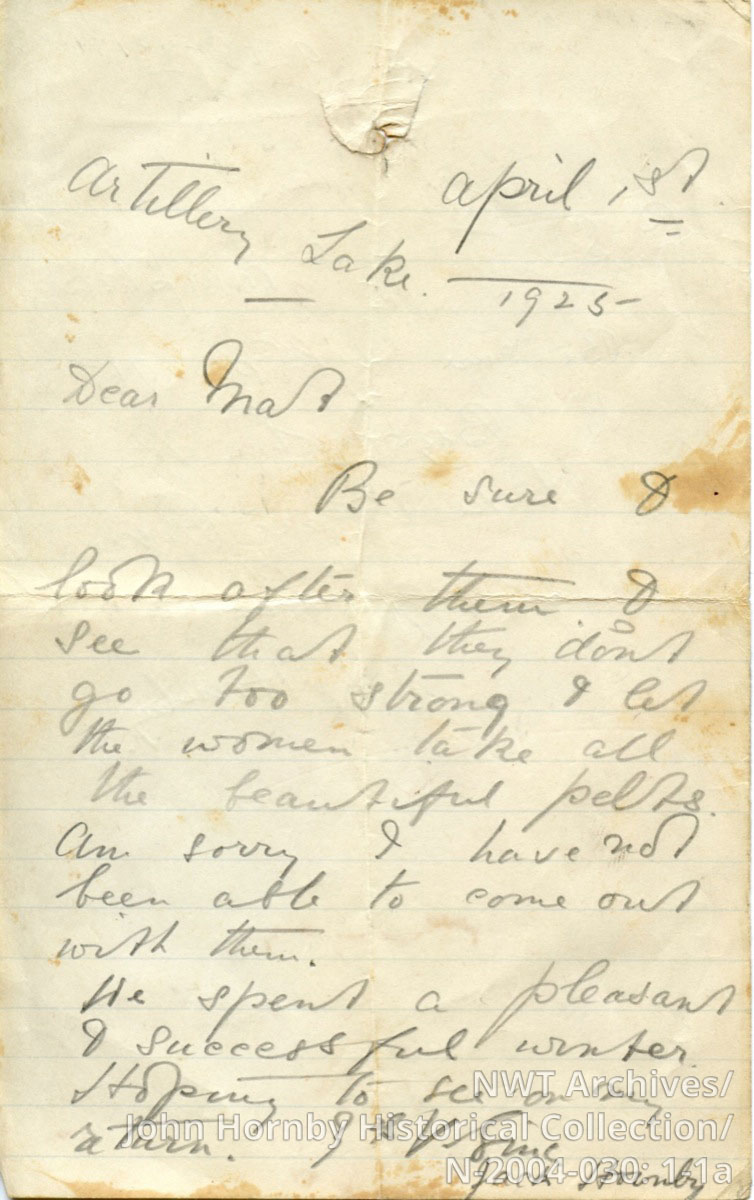 Artillery
Lake.
April 1st
1925
Dear Mat
Be sure &
look after them &
see that they don't
go too strong & let
the women take all
the beautiful pelts.
Am sorry I have not
been able to come out
with them.
We spent a pleasant
& successful winter.
Hoping to see on my
return.
Jack Hornby
NWT Archives/
John Hornby Historical Collection/
N-2004-030: 1-1a